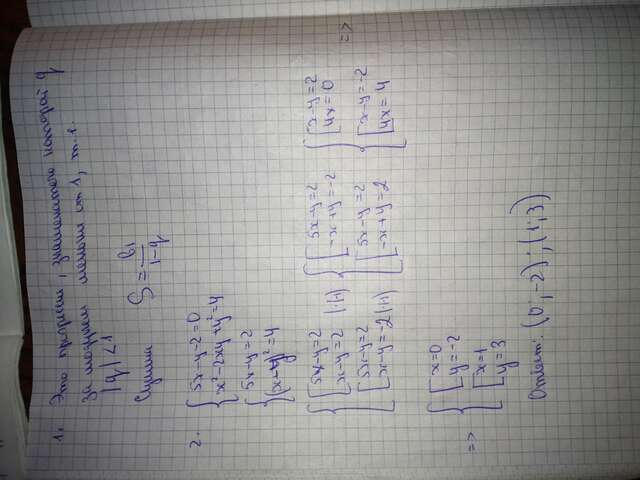 1. Это прогрессия, знаменатель которой q
За модулем меньше от 1, т.е.
|q| < 1
Сумма S = b₁/(1-q)
2. { 5x-y-2=0
x²-2xy+y²=4
{ 5x-y=2
(x-y)²=4
{ [ 5x-y=2
x-y=2 |(-1)
[ 5x-y=2
x-y=-2 |(-1)
{ [ 5x-y=2
-x+y=-2
[ 5x-y=2
-x+y=2
{ [ x-y=2
4x=0
[ x-y=-2
4x=4
=>
=> { [ x=0
y=-2
[ x=1
y=3
Ответ: (0;-2);(1;3)